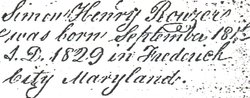 Simon Henry Rouzer
was born September 18th
A.D. 1829 in Frederick
City Maryland.